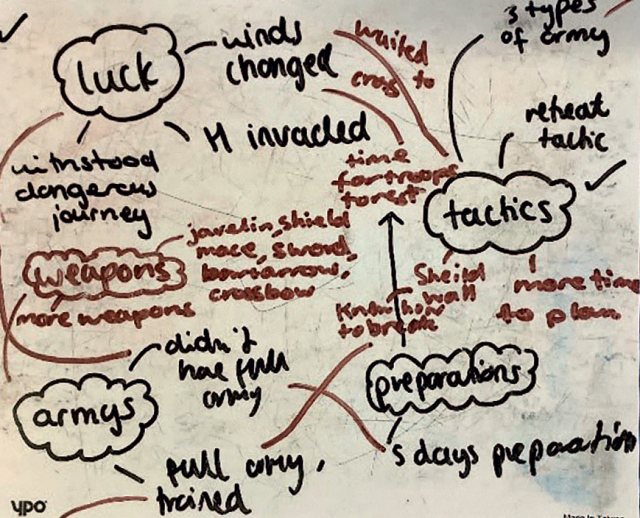 3 types
of army
luck
winds
changed
waited
to
cross
H invaded
retreat
tactic
withstood
dangerous
journey
time
for troops
to rest
tactics
weapons
javelin, shield
mace, sword,
bow+arrow,
crossbow
more weapons
Sheild
wall
more time
to plan
Knew how
to break
didn't
have full
army
armys
preparations
5 days preparation
full army,
trained
ypo